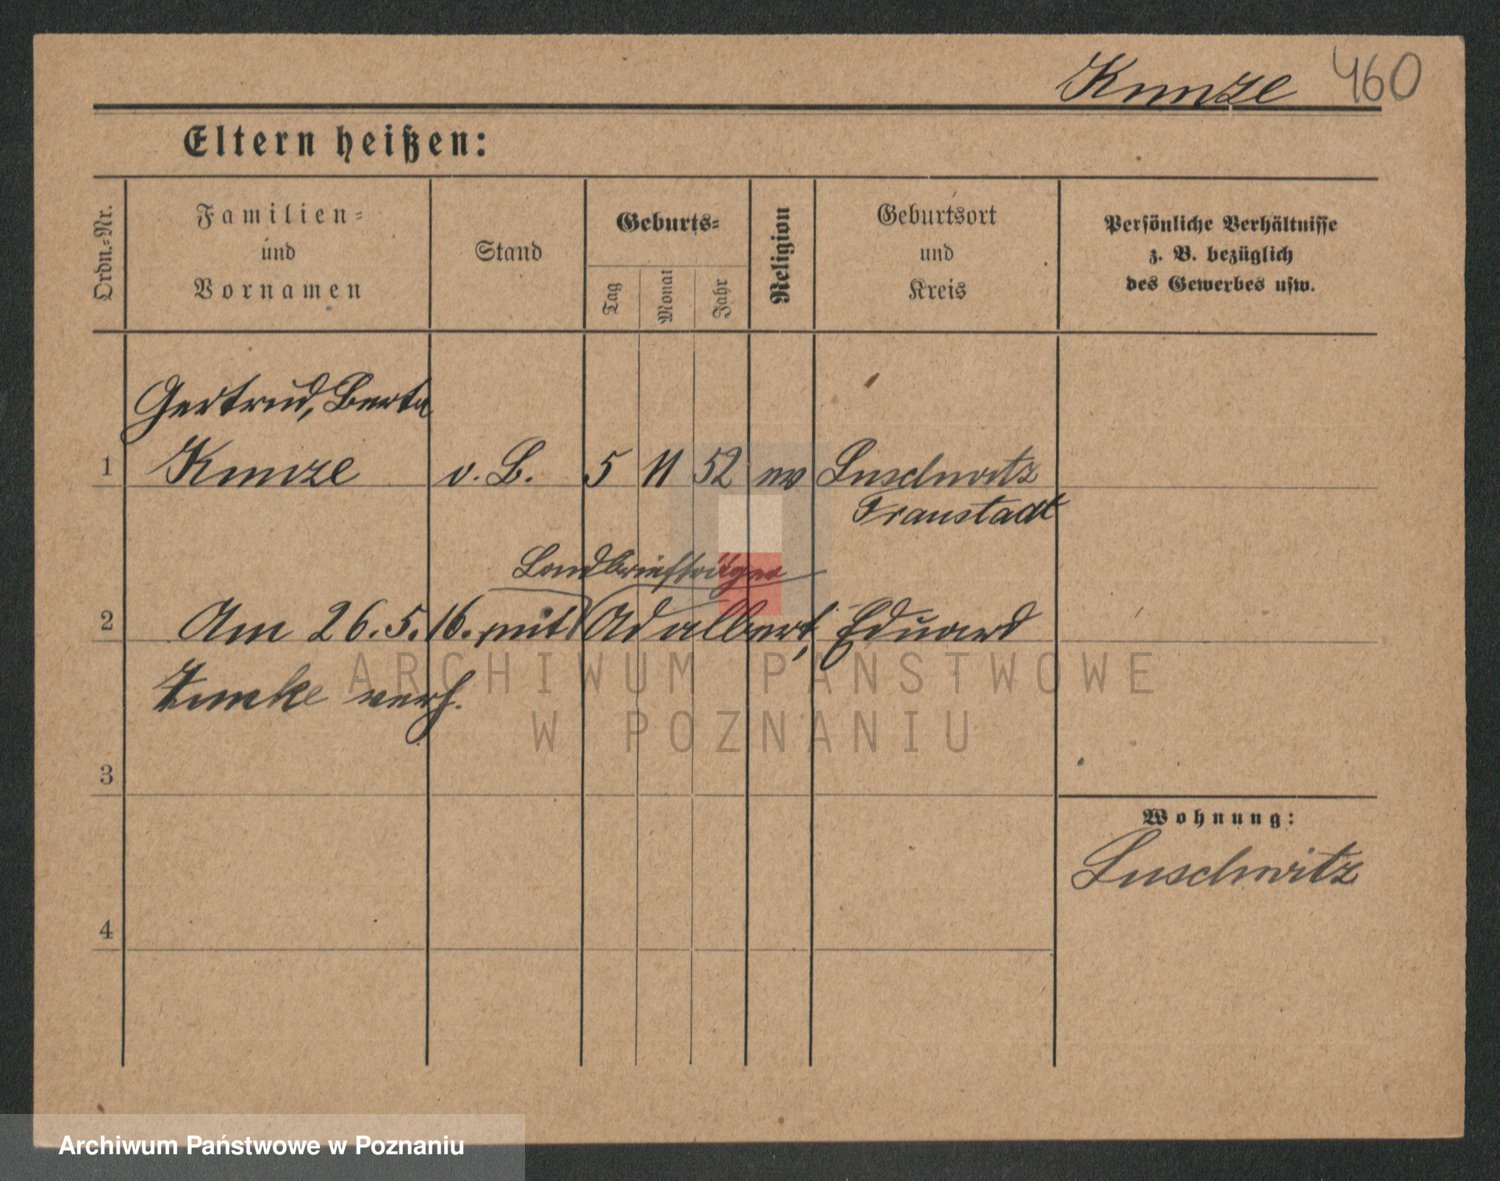 Kunze 460
Eltern heißen:
Ordn.=Nr.
Familien=
und
Vornamen
Stand
Geburts=
Tag
Monat
Jahr
Religion
Geburtsort
und
Kreis
Persönliche Verhältnisse
z. B. bezüglich
des Gewerbes usw.
Gertrud, Berta
1 Kunze o. B. 5 11 52 ev Luschwitz
Fraustadt
Landbriefträger
2 Am 26.5.16. mit Adalbert, Eduard
verh.
ARCHIWUM PAŃSTWOWE
W POZNANIU
3
Wohnung:
Luschwitz
4
Archiwum Państwowe w Poznaniu